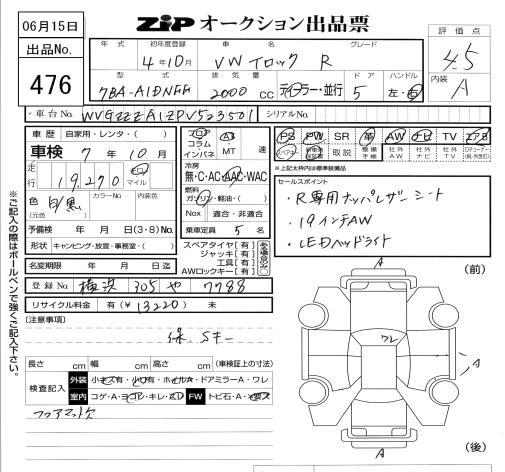 06月15日
ZIP オークション出品票
出品No.
476
年式 初年度登録 車名 グレード
4年10月 VW Tロック R
評価点
4.5
内装
A
型式 排気量 ドア ハンドル
7BA-A1DNFF 2000 CC ディーラー・並行 5 左・右
車台No. WVGZZZA1ZPV523501 シリアルNo.
車歴 自家用・レンタ・( )
車検 7年 10月
走行 19,270 キロ マイル
色 (元色) 黒 カラーNo. 内装色
予備検 年 月 日(3・8)No.
形状 キャンピング・放宣・事務室・( )
名変期限 年 月 日迄
フロア コラム インパネ
A3 MT 速
冷房
無・C・AC・AAC・WAC
燃料
ガソリン・軽油・( )
Nox 適合・非適合
乗車定員 5 名
スペアタイヤ[有]
ジャッキ[有]
工具[有]
AWロックキー[有]
PS PW SR 革 AW ナビ TV エアB
取説 整備手帳 社外AW 社外ナビ 社外TV
※上記太枠内は標準装備品
セールスポイント
・R専用ナッパレザーシート
・19インチAW
・LEDヘッドライト
登録No. 横浜 305 や 7788
リサイクル料金 有(¥13220) 未
[注意事項]
録、Sキー
長さ cm 幅 cm 高さ cm (車検証上の寸法)
検査記入 外装 小キズ有・小凹有・ホイルA・ドアミラーA・ワレ
室内 コゲ・A・ヨゴレ・キレ・スレ FW トビ石・A・
フロアマット欠
※ご記入の際はボールペンで強くご記入下さい。
(前)
A
ワレ
A
A
(後)